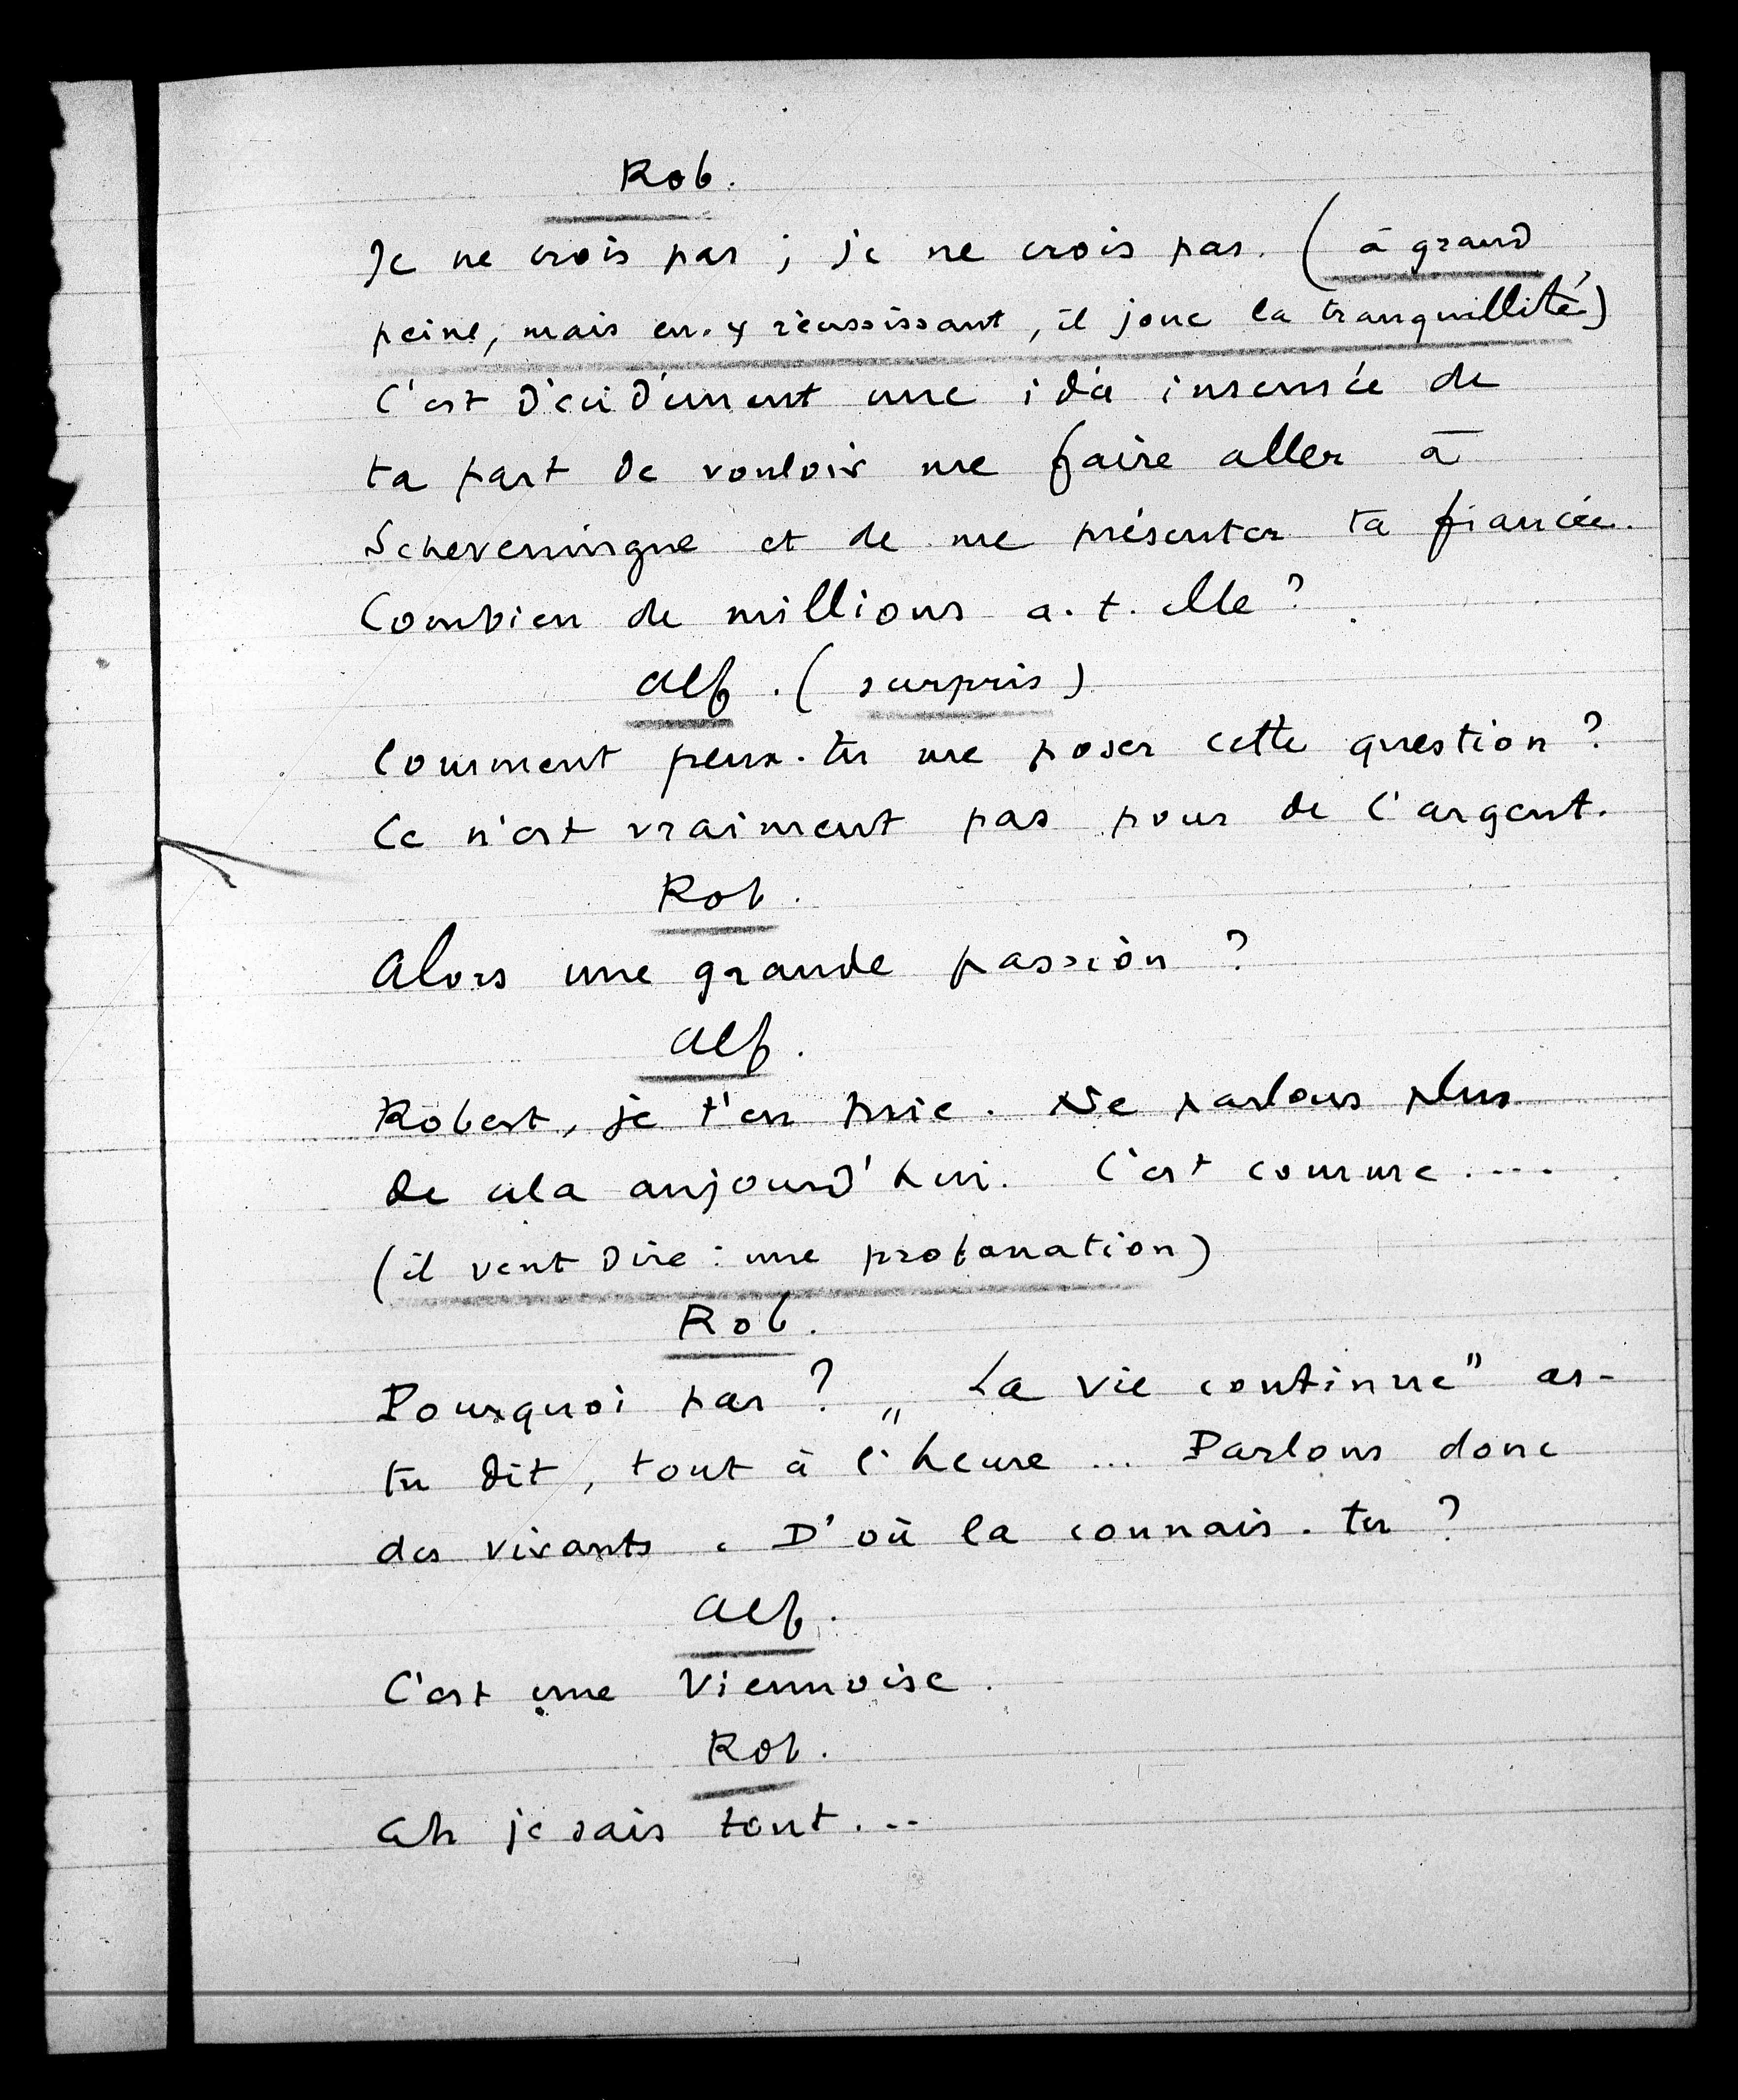 Rob.
Je ne crois pas ; je ne crois pas. ( à grand
peine, mais en.y réussissant, il joue la tranquillité)
C'est décidément une idée insensée de
ta part de vouloir me faire aller à
Scheveningue et de me présenter ta fiancée.
Combien de millions a.t.elle ?
Alf. ( surpris )
Comment peux.tu me poser cette question ?
Ce n'est vraiment pas pour de l'argent.
Rob.
Alors une grande passion ?
Alf.
Robert, je t'en prie. Ne parlons plus
de cela aujourd'hui. C'est comme ....
(il veut dire : une profanation)
Rob.
Pourquoi pas ? „ La vie continue" as-
tu dit, tout à l'heure ... Parlons donc
des vivants . D'où la connais.tu ?
Alf.
C'est une Viennoise.
Rob.
Ah je sais tout...